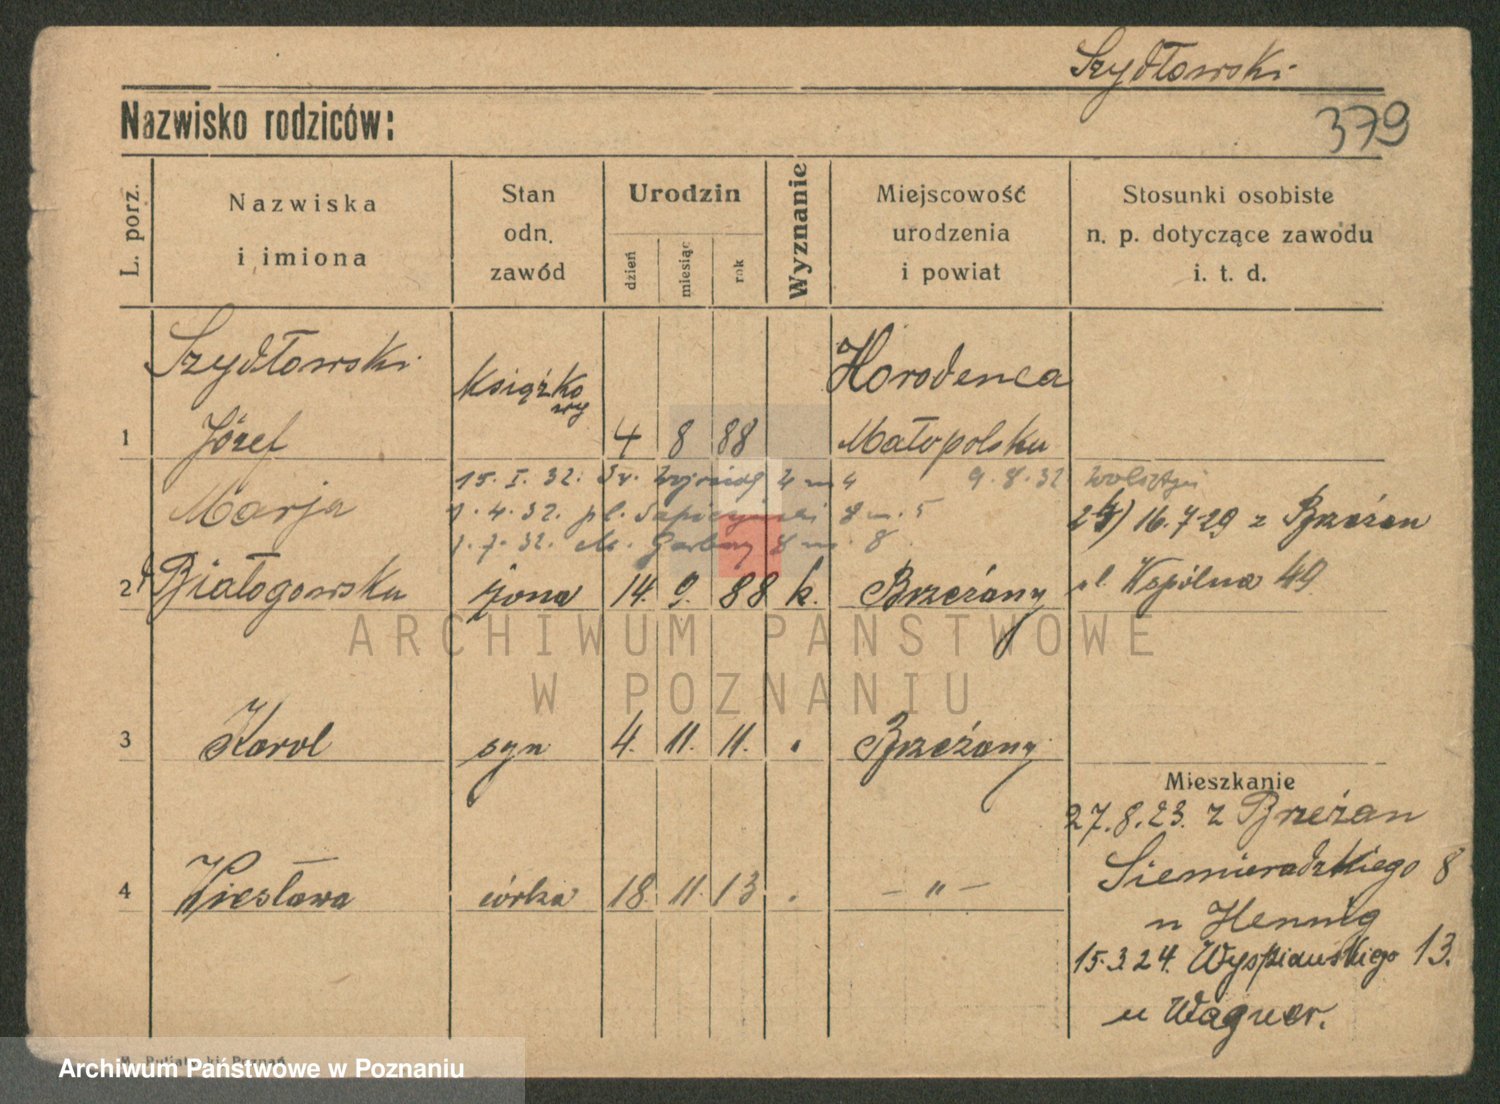 Szydłowski
Nazwisko rodziców:
379
L. porz.
Nazwiska
i imiona
Stan
odn.
zawód
Urodzin
dzień
miesiąc
rok
Wyznanie
Miejscowość
urodzenia
i powiat
Stosunki osobiste
n. p. dotyczące zawodu
i. t. d.
Szydłowski
Książko
wy
Horodenca
1 Józef 4 8 88 Małopolska
15. I. 32. Św. 4 m 4 9.8.32
Marja
1.4.32. pl. 8 m. 5
2 16.7.29 z Brzeżan
1.7.32. M. Garbary 8 m. 8
2 Białogowska żona 14. 9. 88 k. Brzeżany ul. Wspólna 49
ARCHIWUM PAŃSTWOWE
W POZNANIU
3 Karol syn 4. 11. 11. Brzeżany
Mieszkanie
27.8.23. z Brzeżan
Siemieradzkiego 8
4 Wiesława córka 18. 11. 13 . — " —
u Hennig
15.3.24. Wyspiańskiego 13.
u Wagner.
Poznań
Archiwum Państwowe w Poznaniu